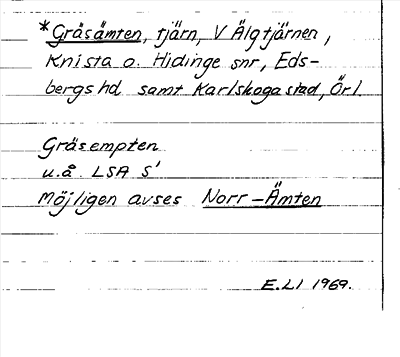 *Gräsämten, tjärn, V Älgtjärnen,
Knista o. Hidinge snr, Eds-
bergs hd samt Karlskoga stad, Örl.
Gräsempten
u.å. LSA S'
Möjligen avses Norr-Ämten
E.LI 1969.